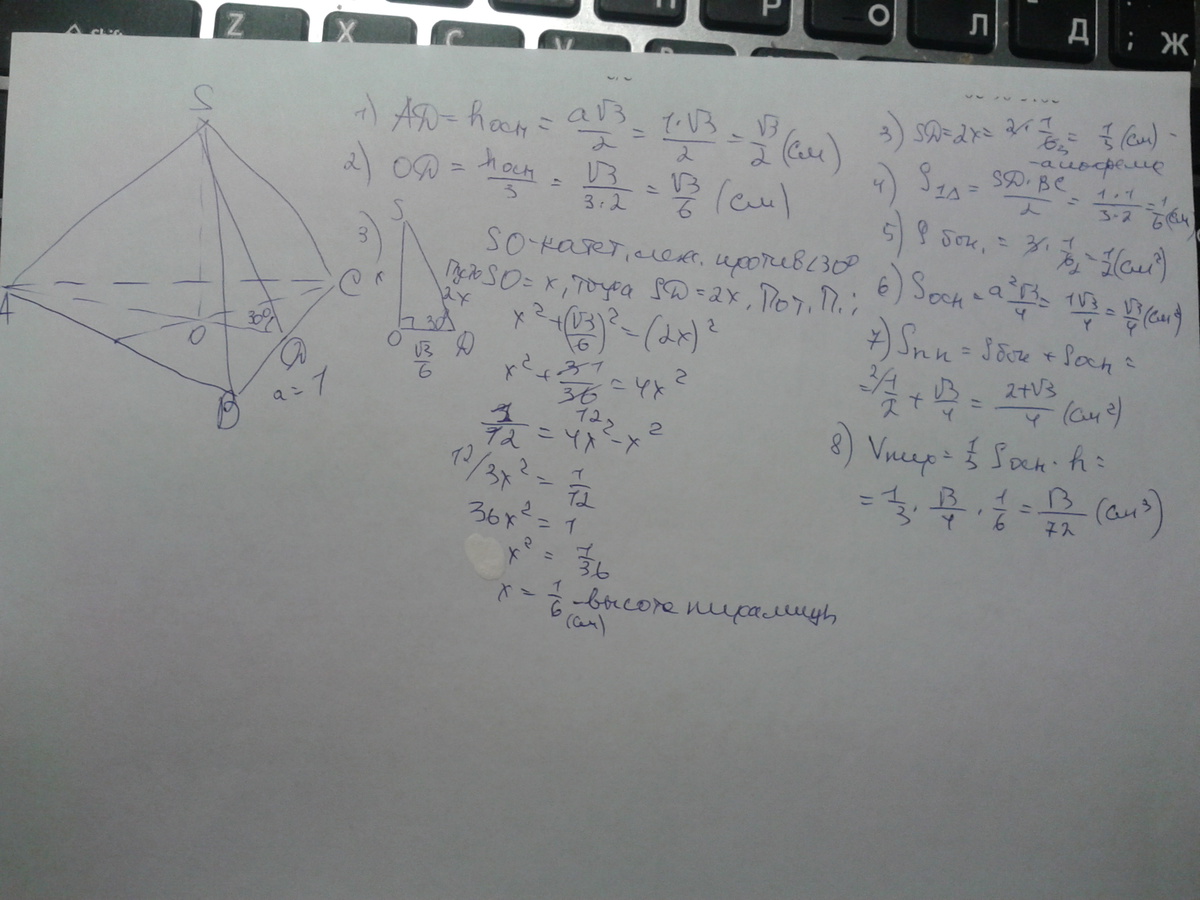 Z X C П Р О Л Д ; Ж
S
A
C
O
30°
D
B
a = 1
1) AD = hосн = a√3/2 = 1·√3/2 = √3/2 (см)
2) OD = hосн/3 = √3/3·2 = √3/6 (см)
3)
S
x
2x
O
30°
D
√3/6
SO-катет, леж. против <30°
Пусть SO = x, тогда SD = 2x, По т. П.:
x² + (√3/6)² = (2x)²
x² + 3/36 = 4x²
1/12 = 4x² - x²
12/ 3x² = 1/12
36x² = 1
x² = 1/36
x = 1/6 (см) - высота пирамиды
3) SD = 2x = 2·1/6 = 1/3 (см) - апофема
4) S1Δ = SD·BC/2 = 1·1/3·2 = 1/6 (см
5) Sбок. = 3·1/6 = 1/2 (см²)
6) Sосн = a²√3/4 = 1√3/4 = √3/4 (см²)
7) Sпп = Sбок + Sосн =
= 2/1/2 + √3/4 = 2+√3/4 (см²)
8) Vпир = 1/3 Sосн · h =
= 1/3 · √3/4 · 1/6 = √3/72 (см³)